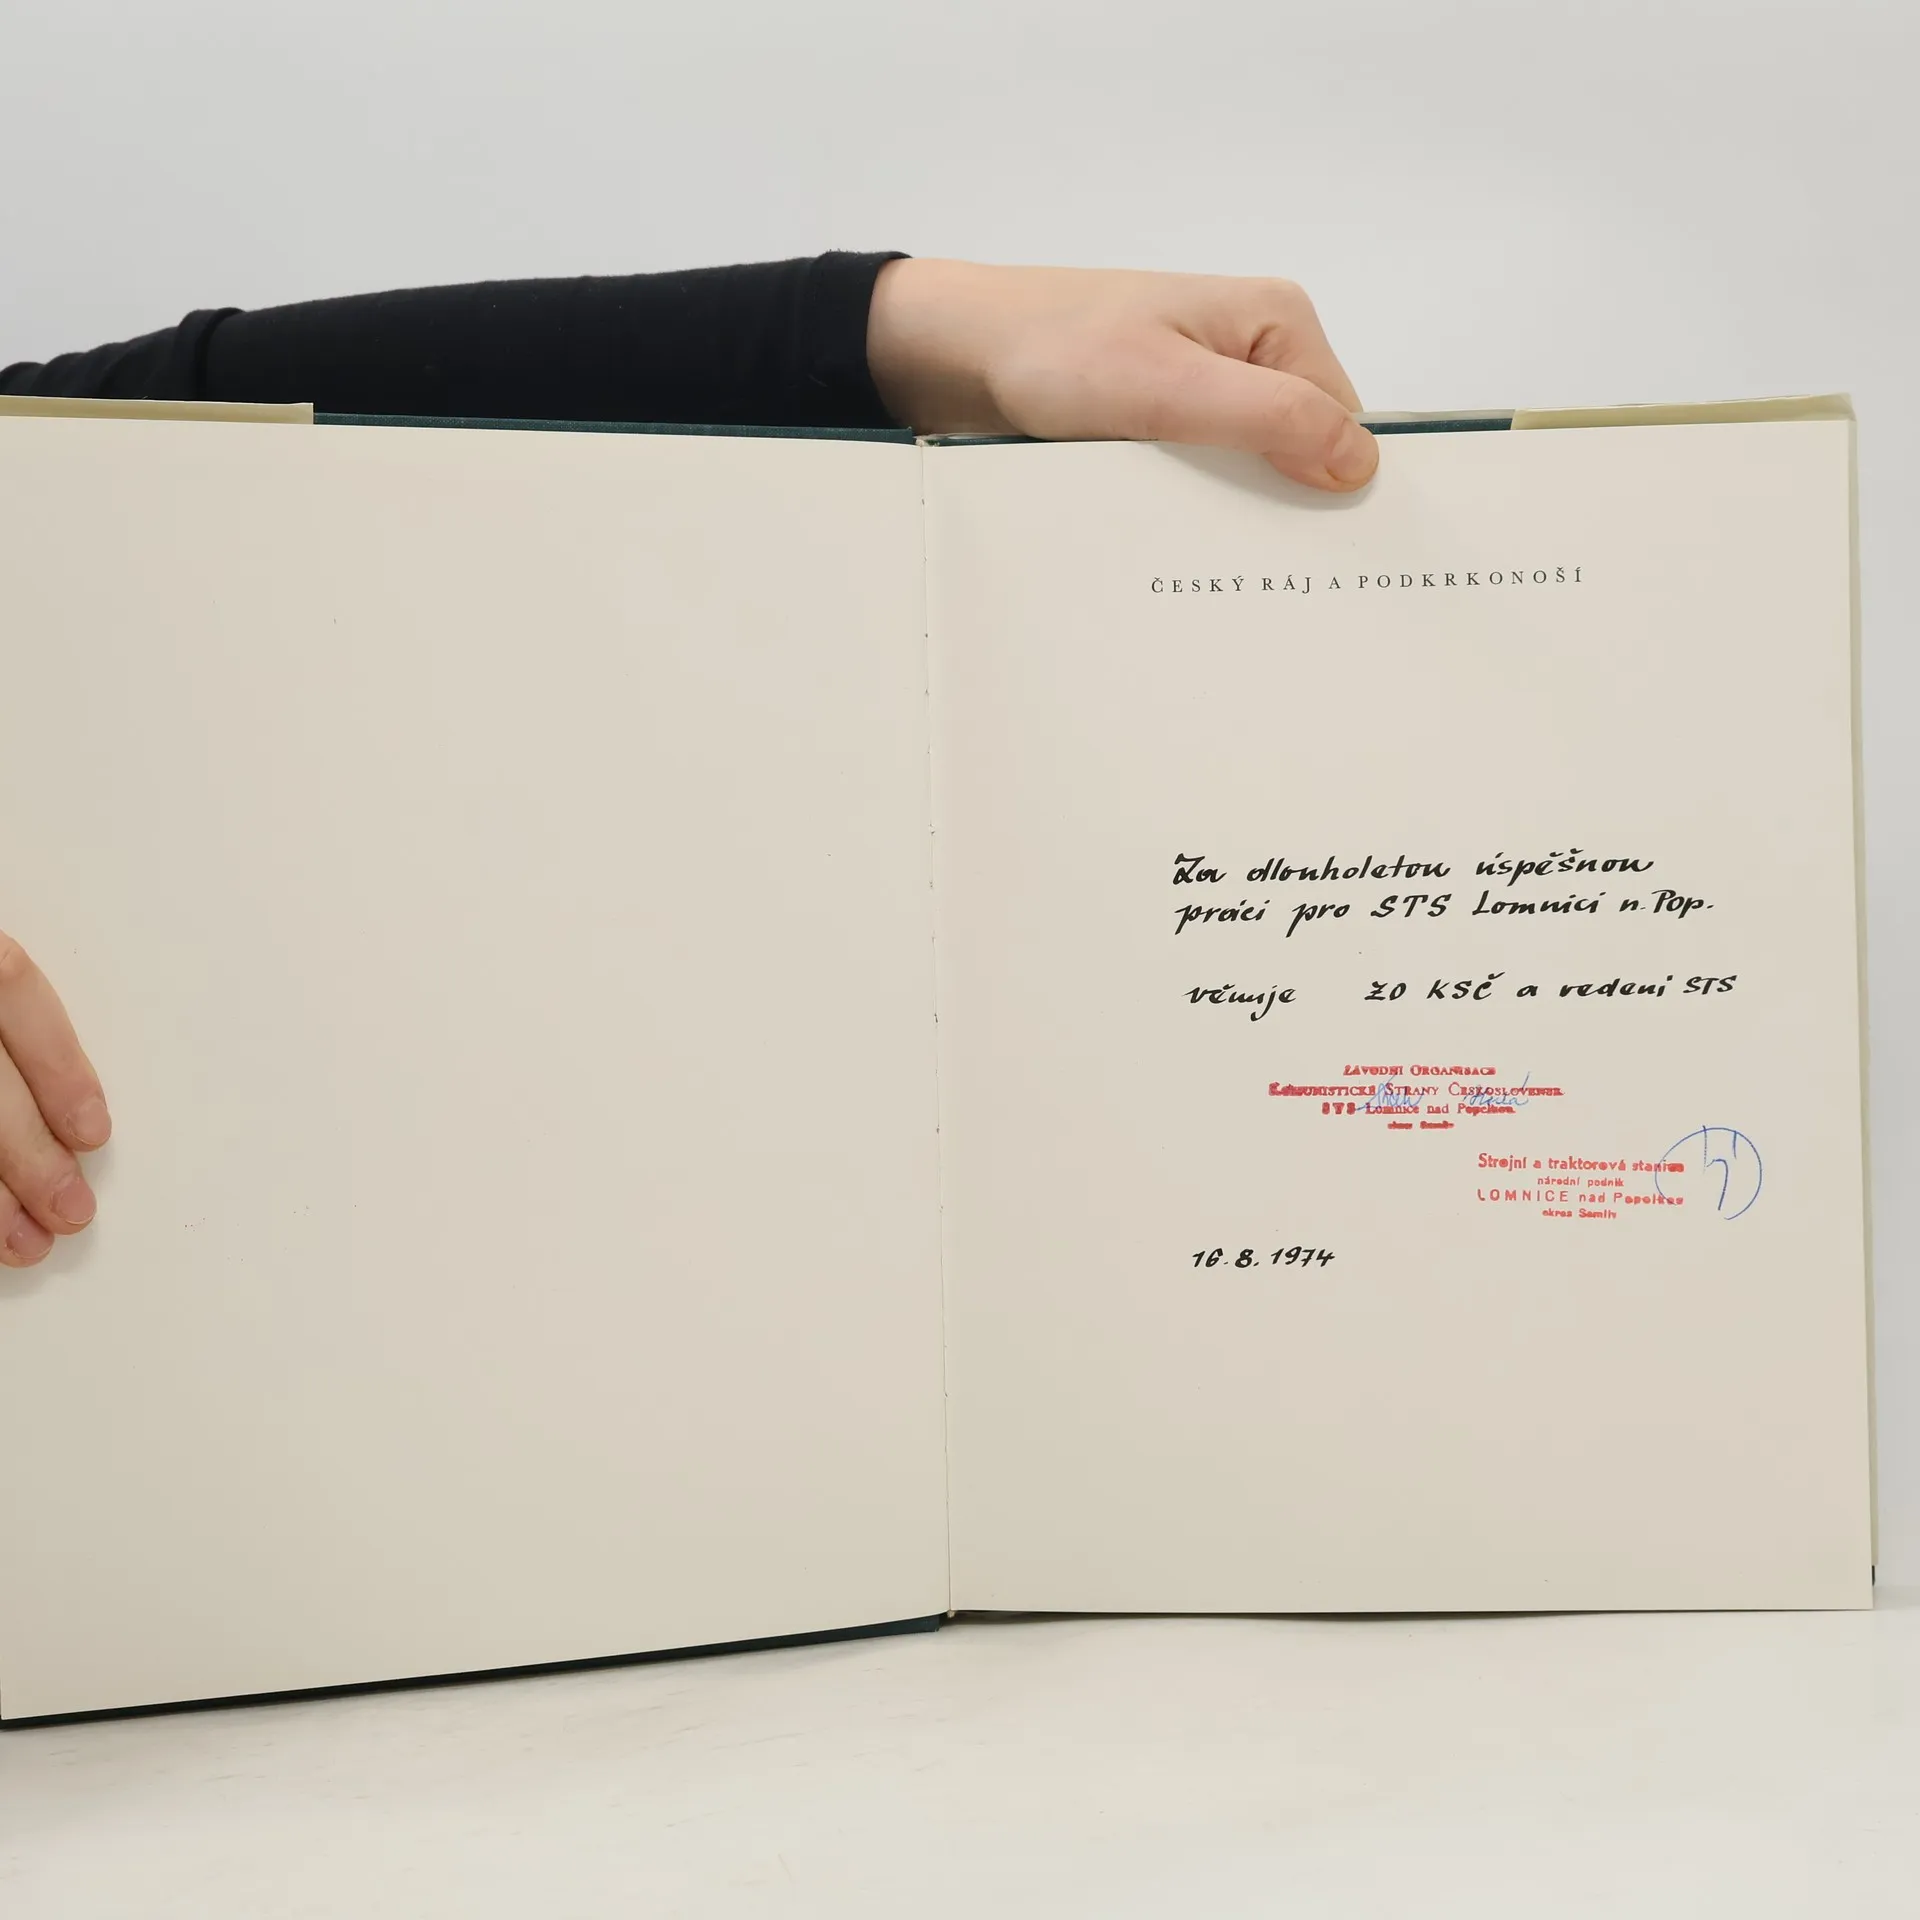 ČESKÝ RÁJ A PODKRKONOŠÍ
Za dlouholetou úspěšnou
práci pro STS Lomnici n. Pop.
věnuje ZO KSČ a vedení STS
ZÁVODNÍ ORGANISACE
KOMUNISTICKÉ STRANY ČESKOSLOVENSKA
STS Lomnice nad Popelkou
okres Semily
Strojní a traktorová stanice
národní podnik
LOMNICE nad Popelkou
okres Semily
16. 8. 1974